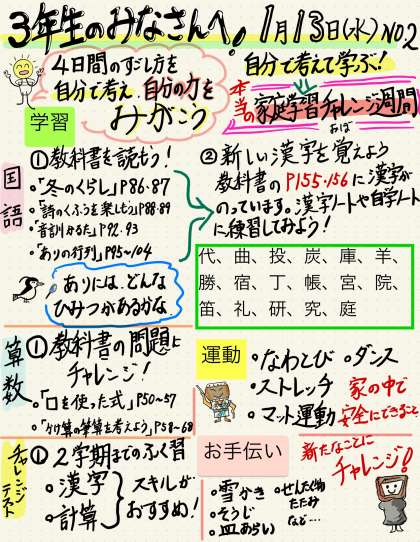 3年生のみなさんへ! 1月13日(水) NO.2
4日間のすごし方を
自分で考え、自分の力を
みがこう
自分で考えて学ぶ!
本当の家庭学習チャレンジ週間
学習
国語
①教科書を読もう!
・「冬のくらし」P86・87
・「詩のくふうを楽しもう」P88・89
・「音訓かるた」P92・93
・「ありの行列」P95〜104
ありには、どんな
ひみつがあるかな
②新しい漢字を覚えよう
おぼ
教科書のP155・156に漢字が
のっています。漢字ノートや自学ノート
に練習してみよう!
代、曲、投、炭、庫、羊、
勝、宿、丁、帳、宮、院、
笛、礼、研、究、庭
算数
①教科書の問題に
チャレンジ!
・「□を使った式」P50〜57
・「かけ算の筆算を考えよう」P58〜68
運動
・なわとび ・ダンス
・ストレッチ
・マット運動
家の中で
安全にできること
チャレンジテスト
①2学期までのふく習
・漢字
・計算
スキルが
おすすめ!
お手伝い
新たなことに
チャレンジ!
・雪かき
・そうじ
・皿あらい
・せんたく物
たたみ
など…